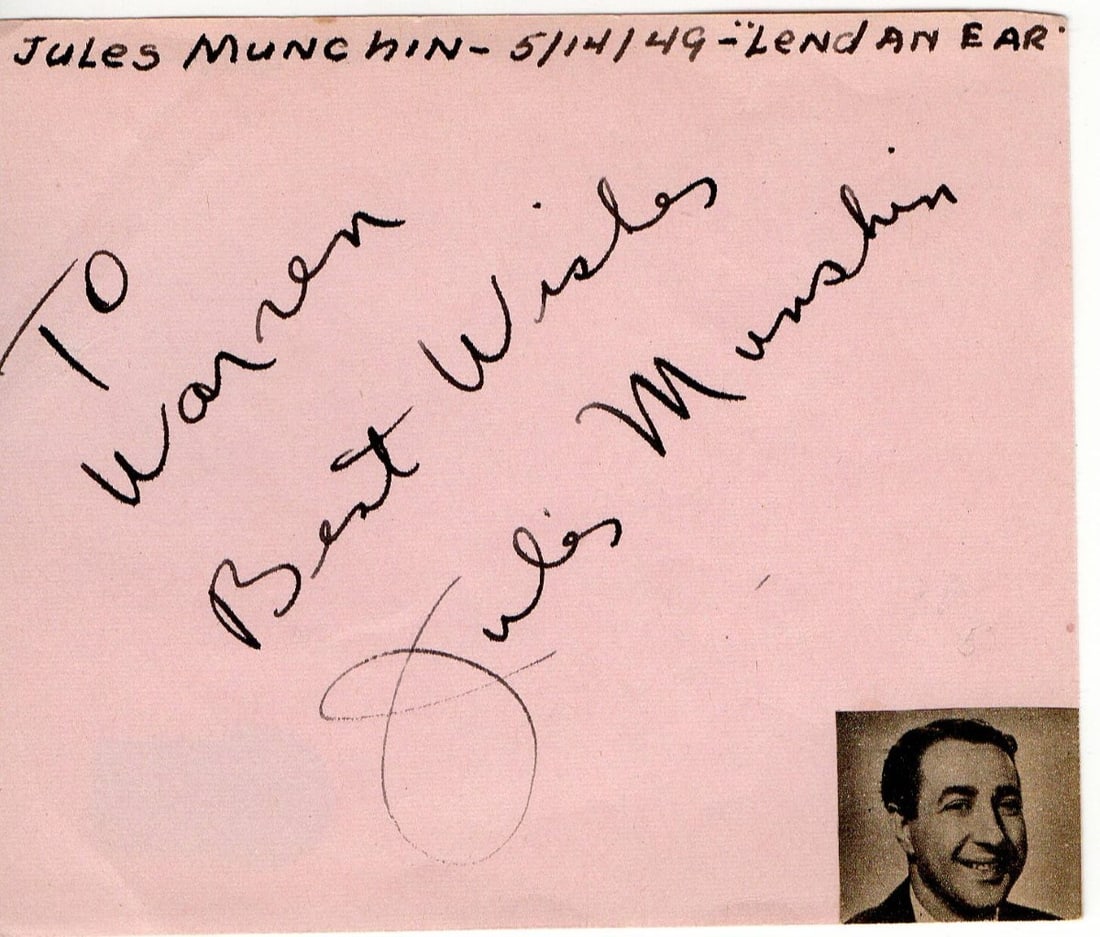 JULES MUNCHIN - 5/14/49 - "LEND AN EAR"
To
Warren
Best Wishes
Jules Munshin